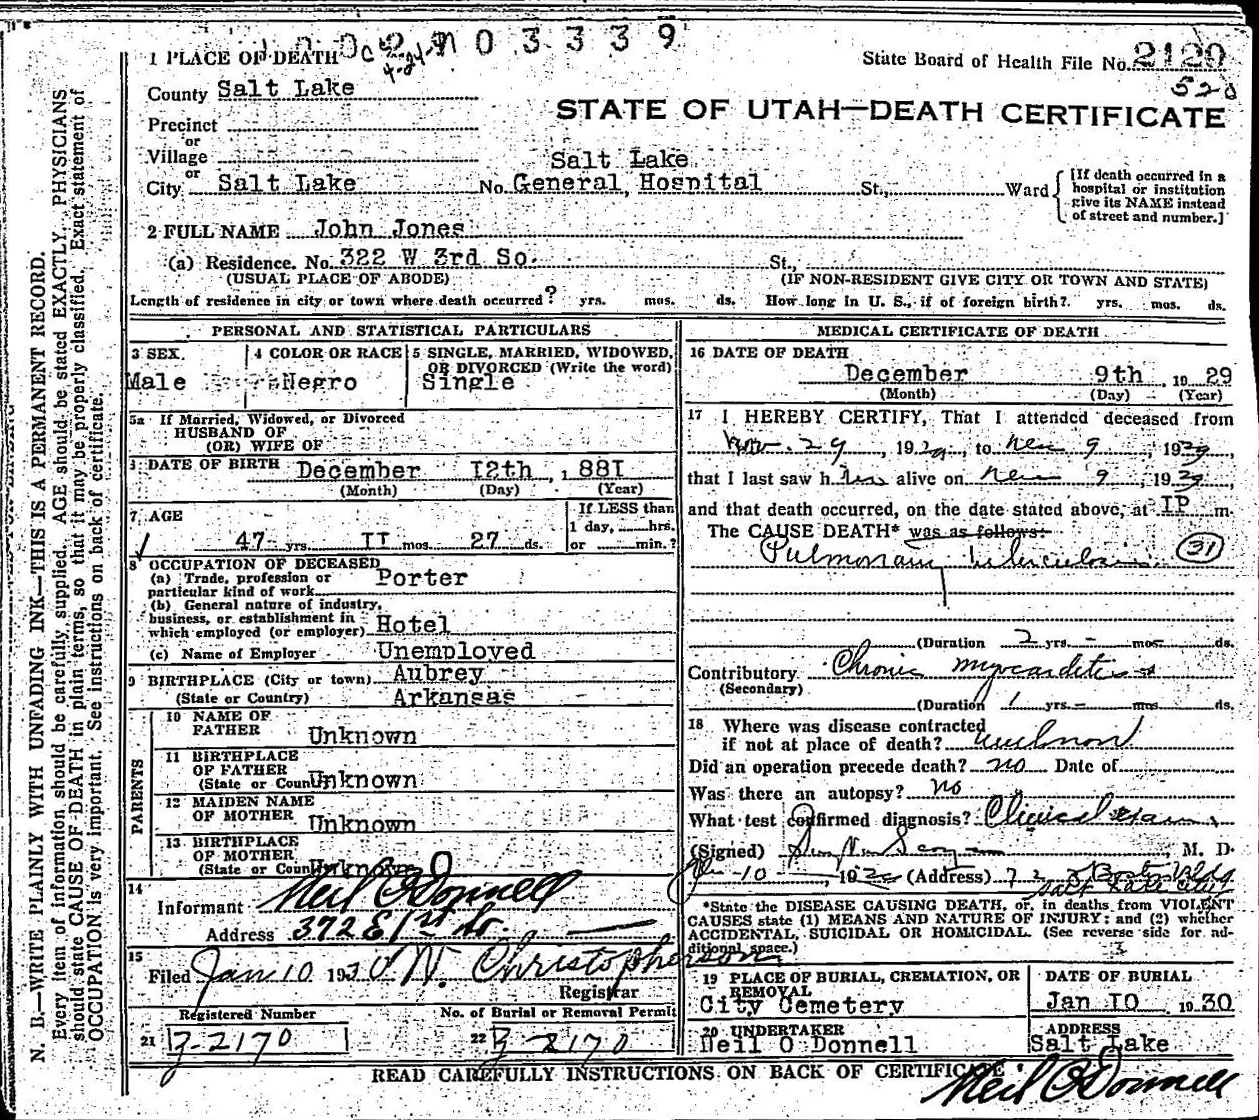 1 PLACE OF DEATH
State Board of Health File No. 2120
520
County Salt Lake
STATE OF UTAH—DEATH CERTIFICATE
Precinct
or
Village
or
City Salt Lake No. Salt Lake General Hospital St., Ward
[If death occurred in a hospital or institution give its NAME instead of street and number.]
2 FULL NAME John Jones
(a) Residence. No. 322 W 3rd So. St.,
(USUAL PLACE OF ABODE) (IF NON-RESIDENT GIVE CITY OR TOWN AND STATE)
Length of residence in city or town where death occurred? yrs. mos. ds. How long in U. S., if of foreign birth? yrs. mos. ds.
PERSONAL AND STATISTICAL PARTICULARS
3 SEX. 4 COLOR OR RACE 5 SINGLE, MARRIED, WIDOWED,
OR DIVORCED (Write the word)
Male Negro Single
5a If Married, Widowed, or Divorced
HUSBAND OF
(OR) WIFE OF
DATE OF BIRTH December 12th, 1881
(Month) (Day) (Year)
7 AGE
If LESS than
1 day, hrs.
47 yrs. 11 mos. 27 ds. or min.?
8 OCCUPATION OF DECEASED
(a) Trade, profession or
particular kind of work Porter
(b) General nature of industry,
business, or establishment in
which employed (or employer) Hotel
(c) Name of Employer Unemployed
9 BIRTHPLACE (City or town) Aubrey
(State or Country) Arkansas
PARENTS
10 NAME OF
FATHER Unknown
11 BIRTHPLACE
OF FATHER
(State or Coun Unknown
12 MAIDEN NAME
OF MOTHER Unknown
13 BIRTHPLACE
OF MOTHER
(State or Coun Unknown
14
Informant Neil O'Donnell
Address 372 E 1st So.
15
Filed Jan 10 1930 W. Christopherson
Registrar
Registered Number No. of Burial or Removal Permit
21 Z-2170 22 Z-2170
MEDICAL CERTIFICATE OF DEATH
16 DATE OF DEATH
December 9th 1929
(Month) (Day) (Year)
17 I HEREBY CERTIFY, That I attended deceased from
Nov. 29, 1929, to Dec 9, 1929
that I last saw him alive on Dec 9, 1929
and that death occurred, on the date stated above, at 1P m.
The CAUSE DEATH* was as follows:
Pulmonary tuberculosis 31
(Duration 2 yrs. - mos. ds.
Contributory Chronic myocarditis
(Secondary)
(Duration 1 yrs. - mos ds.
18 Where was disease contracted
if not at place of death? unknown
Did an operation precede death? no Date of
Was there an autopsy? no
What test confirmed diagnosis? Clinical exam
(Signed) M. D.
10, 19 (Address) Boston Bldg
Salt Lake City
*State the DISEASE CAUSING DEATH, or, in deaths from VIOLENT
CAUSES state (1) MEANS AND NATURE OF INJURY; and (2) whether
ACCIDENTAL, SUICIDAL OR HOMICIDAL. (See reverse side for ad-
ditional space.)
19 PLACE OF BURIAL, CREMATION, OR
REMOVAL
City Cemetery
DATE OF BURIAL
Jan 10 1930
20 UNDERTAKER
Neil O Donnell
ADDRESS
Salt Lake
READ CAREFULLY INSTRUCTIONS ON BACK OF CERTIFICATE
Neil O'Donnell
N. B.—WRITE PLAINLY WITH UNFADING INK—THIS IS A PERMANENT RECORD.
Every item of information should be carefully supplied. AGE should be stated EXACTLY. PHYSICIANS
should state CAUSE OF DEATH in plain terms, so that it may be properly classified. Exact statement of
OCCUPATION is very important. See instructions on back of certificate.